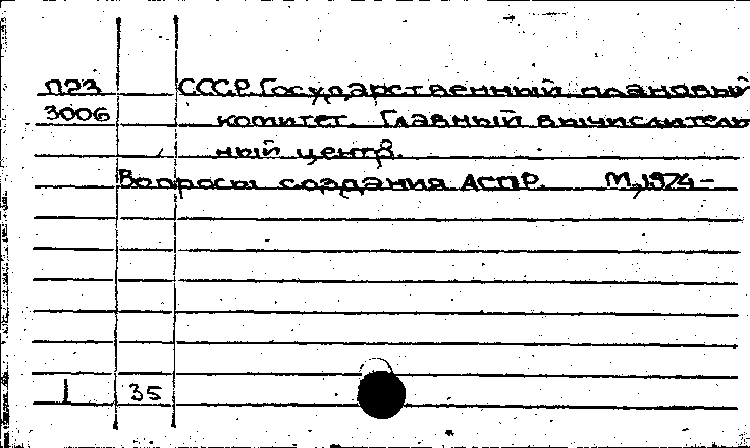 П23 СССР. Государственный плановый
3006 комитет. Главный вычислитель-
ный центр.
Вопросы создания АСПР. М., 1974-
1 35